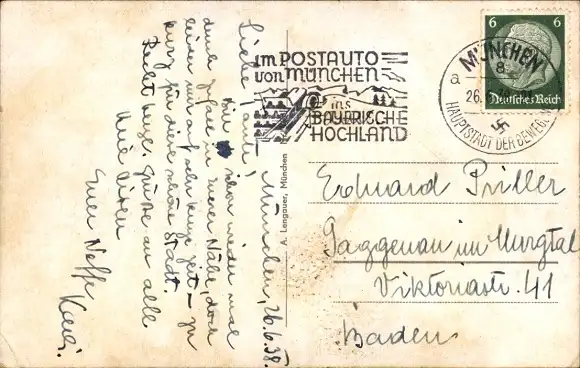 München, 26.6.38.
Liebe Tante,
Bin schon wieder mal
durch Zufall in Eurer Nähe, doch
leider nur auf sehr kurze Zeit – zu
kurz für diese schöne Stadt.
Recht herzl. Grüße an alle
Euer Neffe
Karli.
A. Lengauer, München
IM POSTAUTO
von MÜNCHEN
ins
BAYERISCHE
HOCHLAND
MÜNCHEN
8
a
26.6.38
HAUPTSTADT DER BEWEG.
6 6
Deutsches Reich
Erhard Priller
Gaggenau im Murgtal
Viktoriastr. 41
Baden